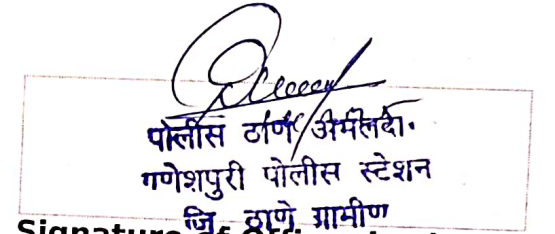 पोलीस ठाणे अंमलदार.
गणेशपुरी पोलीस स्टेशन
जि. ठाणे ग्रामीण
Signature of